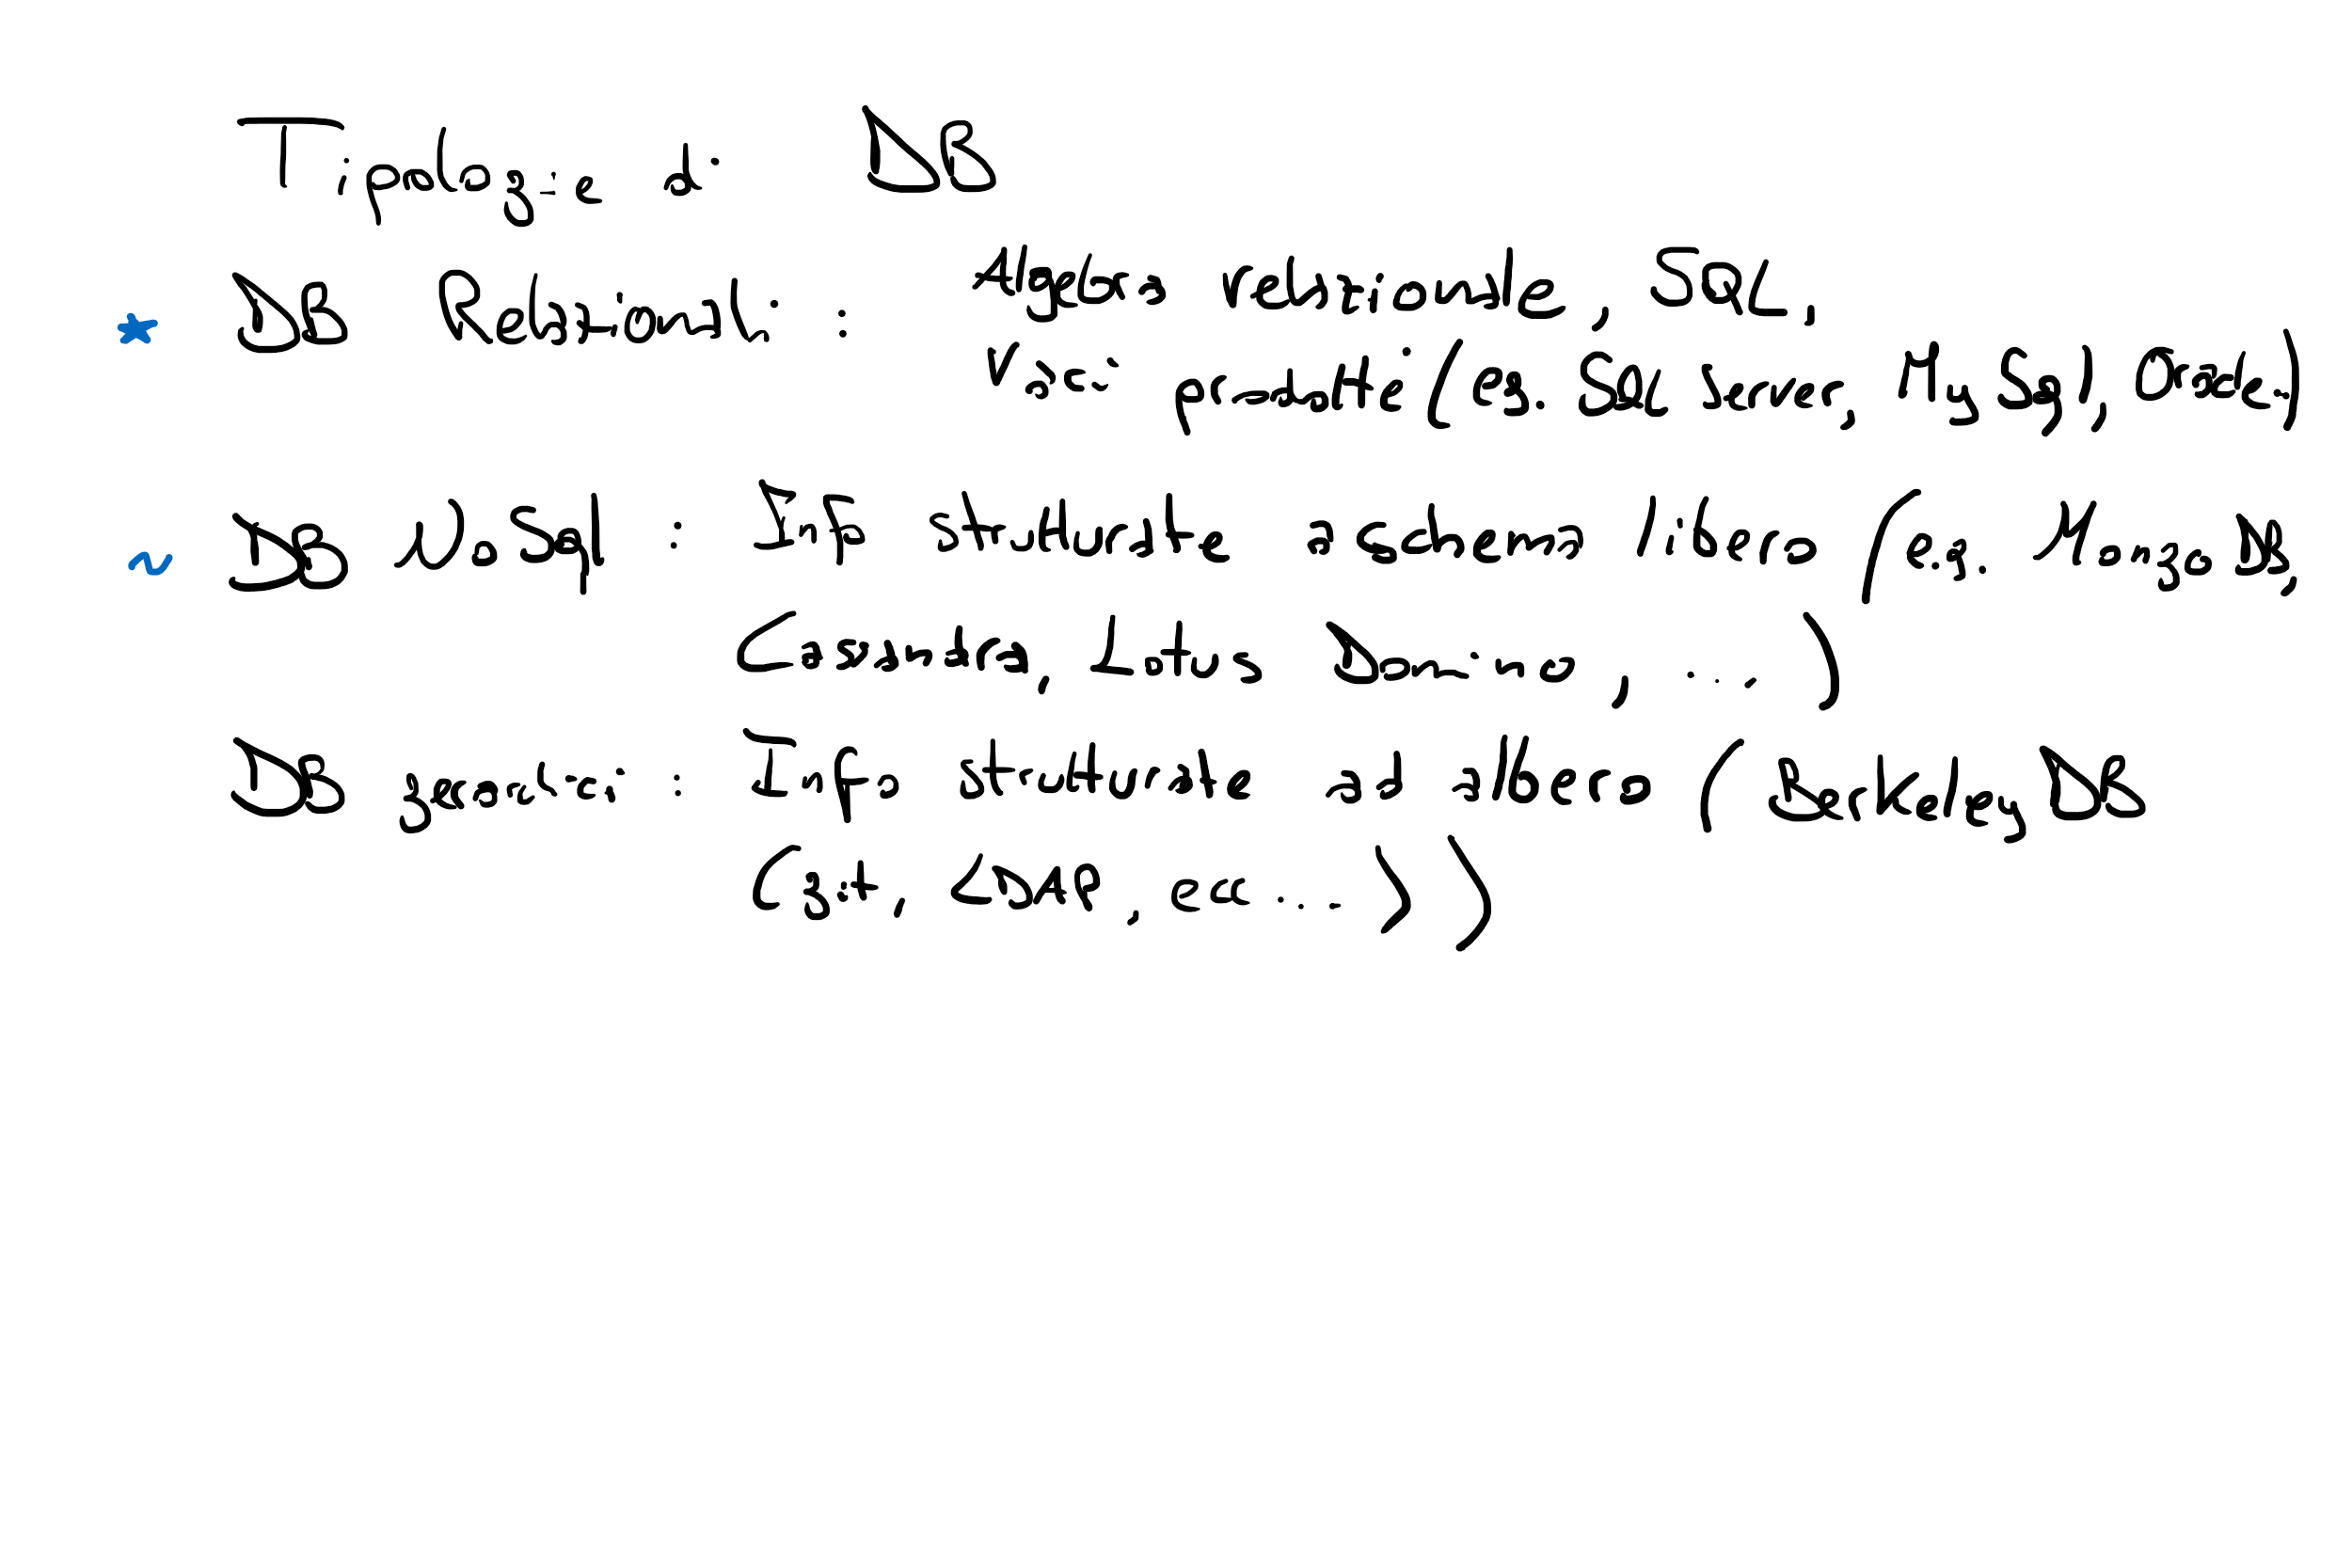 Tipologie di DB
* DB Relazionali : Algebra relazionale, SQL,
Vari prodotti (es. SQL Server, My Sql, Oracle..)
~ DB NoSql : Info strutturate a schema libero (e.g. MongoDB,
Cassandra, Lotus Domino, ...)
DB gerarchici : Info strutturate ad albero ( BerkeleyDB
(git, LDAP, ecc ... ) )